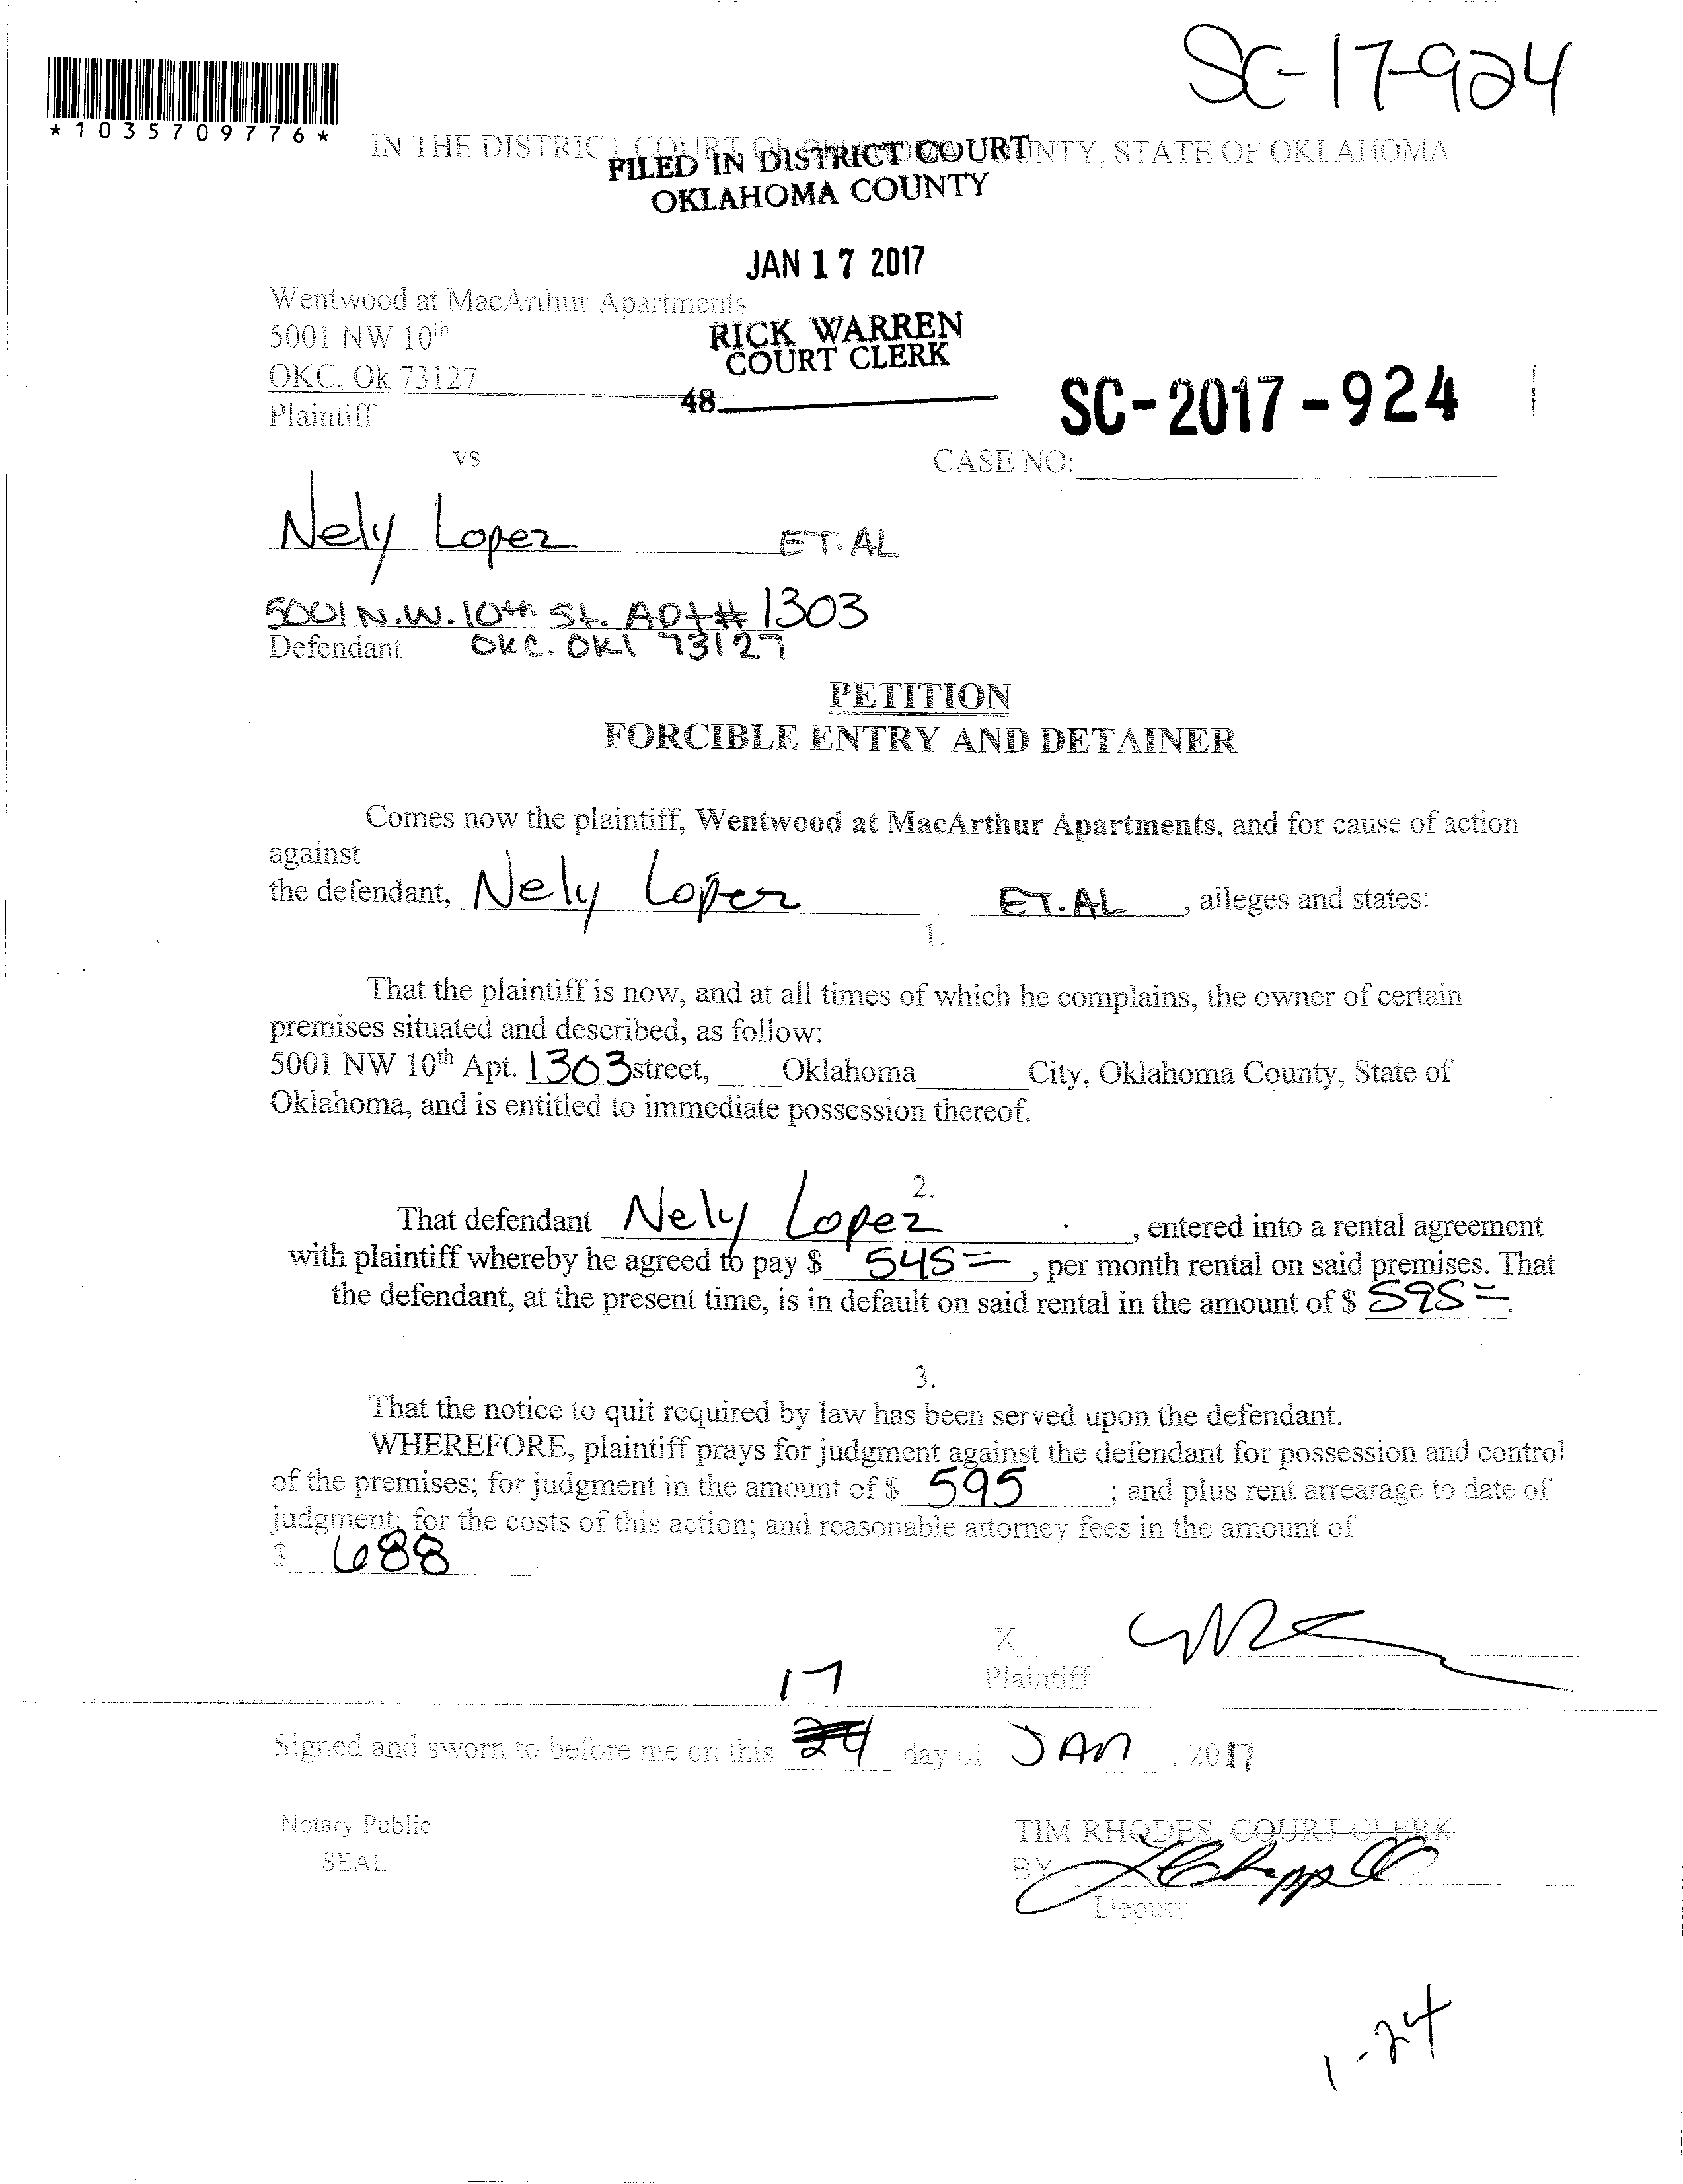 SC-17-924
*1035709776*
IN THE DISTRICT COURT OF OKLAHOMA COUNTY, STATE OF OKLAHOMA
FILED IN DISTRICT COURT
OKLAHOMA COUNTY
JAN 17 2017
Wentwood at MacArthur Apartments
5001 NW 10th
RICK WARREN
COURT CLERK
OKC, Ok 73127
48
Plaintiff
SC-2017-924
vs
CASE NO:
Nely Lopez ET. AL.
5001 N.W. 10th St. Apt# 1303
Defendant OKC. OKl 73127
PETITION
FORCIBLE ENTRY AND DETAINER
Comes now the plaintiff, Wentwood at MacArthur Apartments, and for cause of action
against
the defendant, Nely Lopez ET. AL, alleges and states:
1.
That the plaintiff is now, and at all times of which he complains, the owner of certain
premises situated and described, as follow:
5001 NW 10th Apt. 1303 street, Oklahoma City, Oklahoma County, State of
Oklahoma, and is entitled to immediate possession thereof.
2.
That defendant Nely Lopez, entered into a rental agreement
with plaintiff whereby he agreed to pay $ 545=, per month rental on said premises. That
the defendant, at the present time, is in default on said rental in the amount of $ 595=.
3.
That the notice to quit required by law has been served upon the defendant.
WHEREFORE, plaintiff prays for judgment against the defendant for possession and control
of the premises; for judgment in the amount of $ 595; and plus rent arrearage to date of
judgment; for the costs of this action; and reasonable attorney fees in the amount of
$ 688
X
Plaintiff
17
Signed and sworn to before me on this 24 day of JAN, 2017
Notary Public
SEAL
TIM RHODES, COURT CLERK
BY:
Deputy
1-24